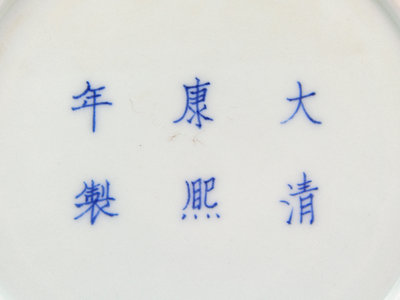 大清
康熙
年製